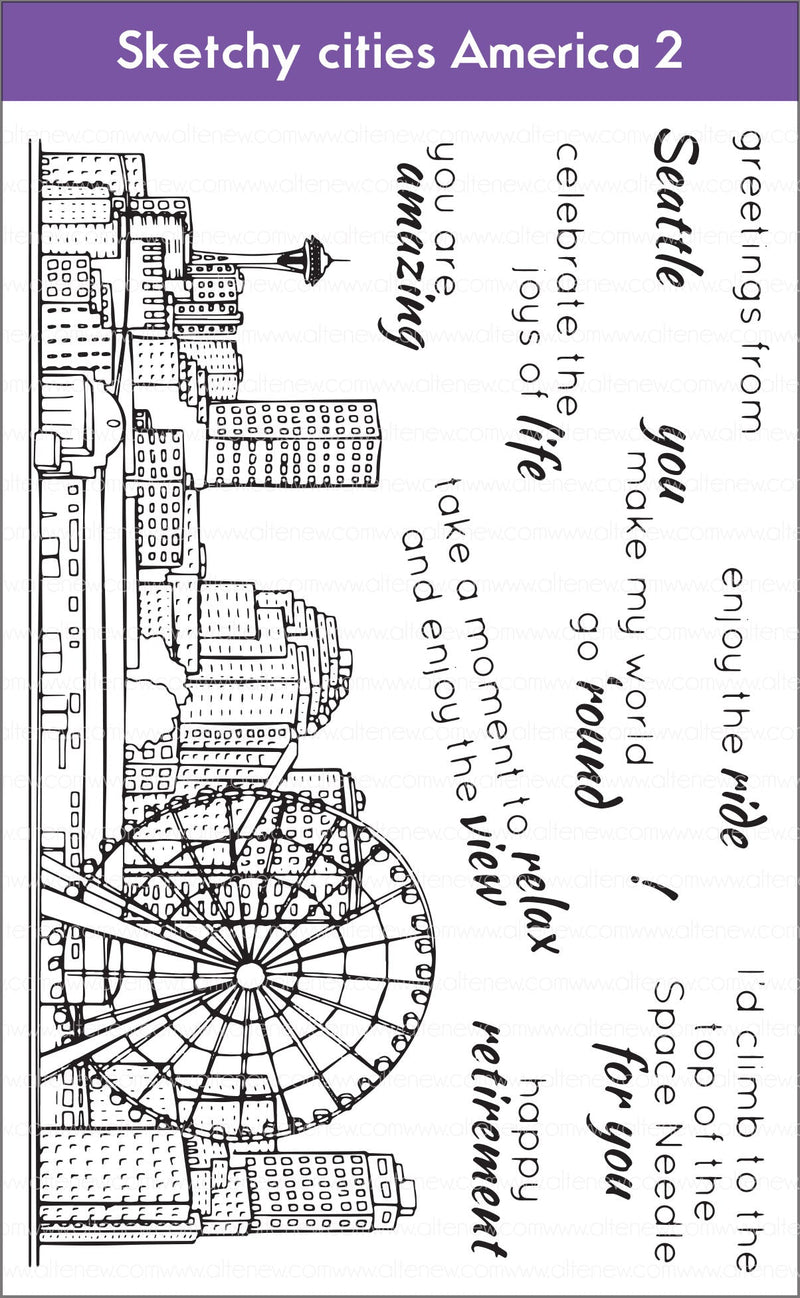 Sketchy cities America 2
greetings from
Seattle
enjoy the ride
I'd climb to the
top of the
Space Needle
for you
you
make my world
go round
!
celebrate the
joys of life
you are
amazing
take a moment to relax
and enjoy the view
happy
retirement
www.altenew.com